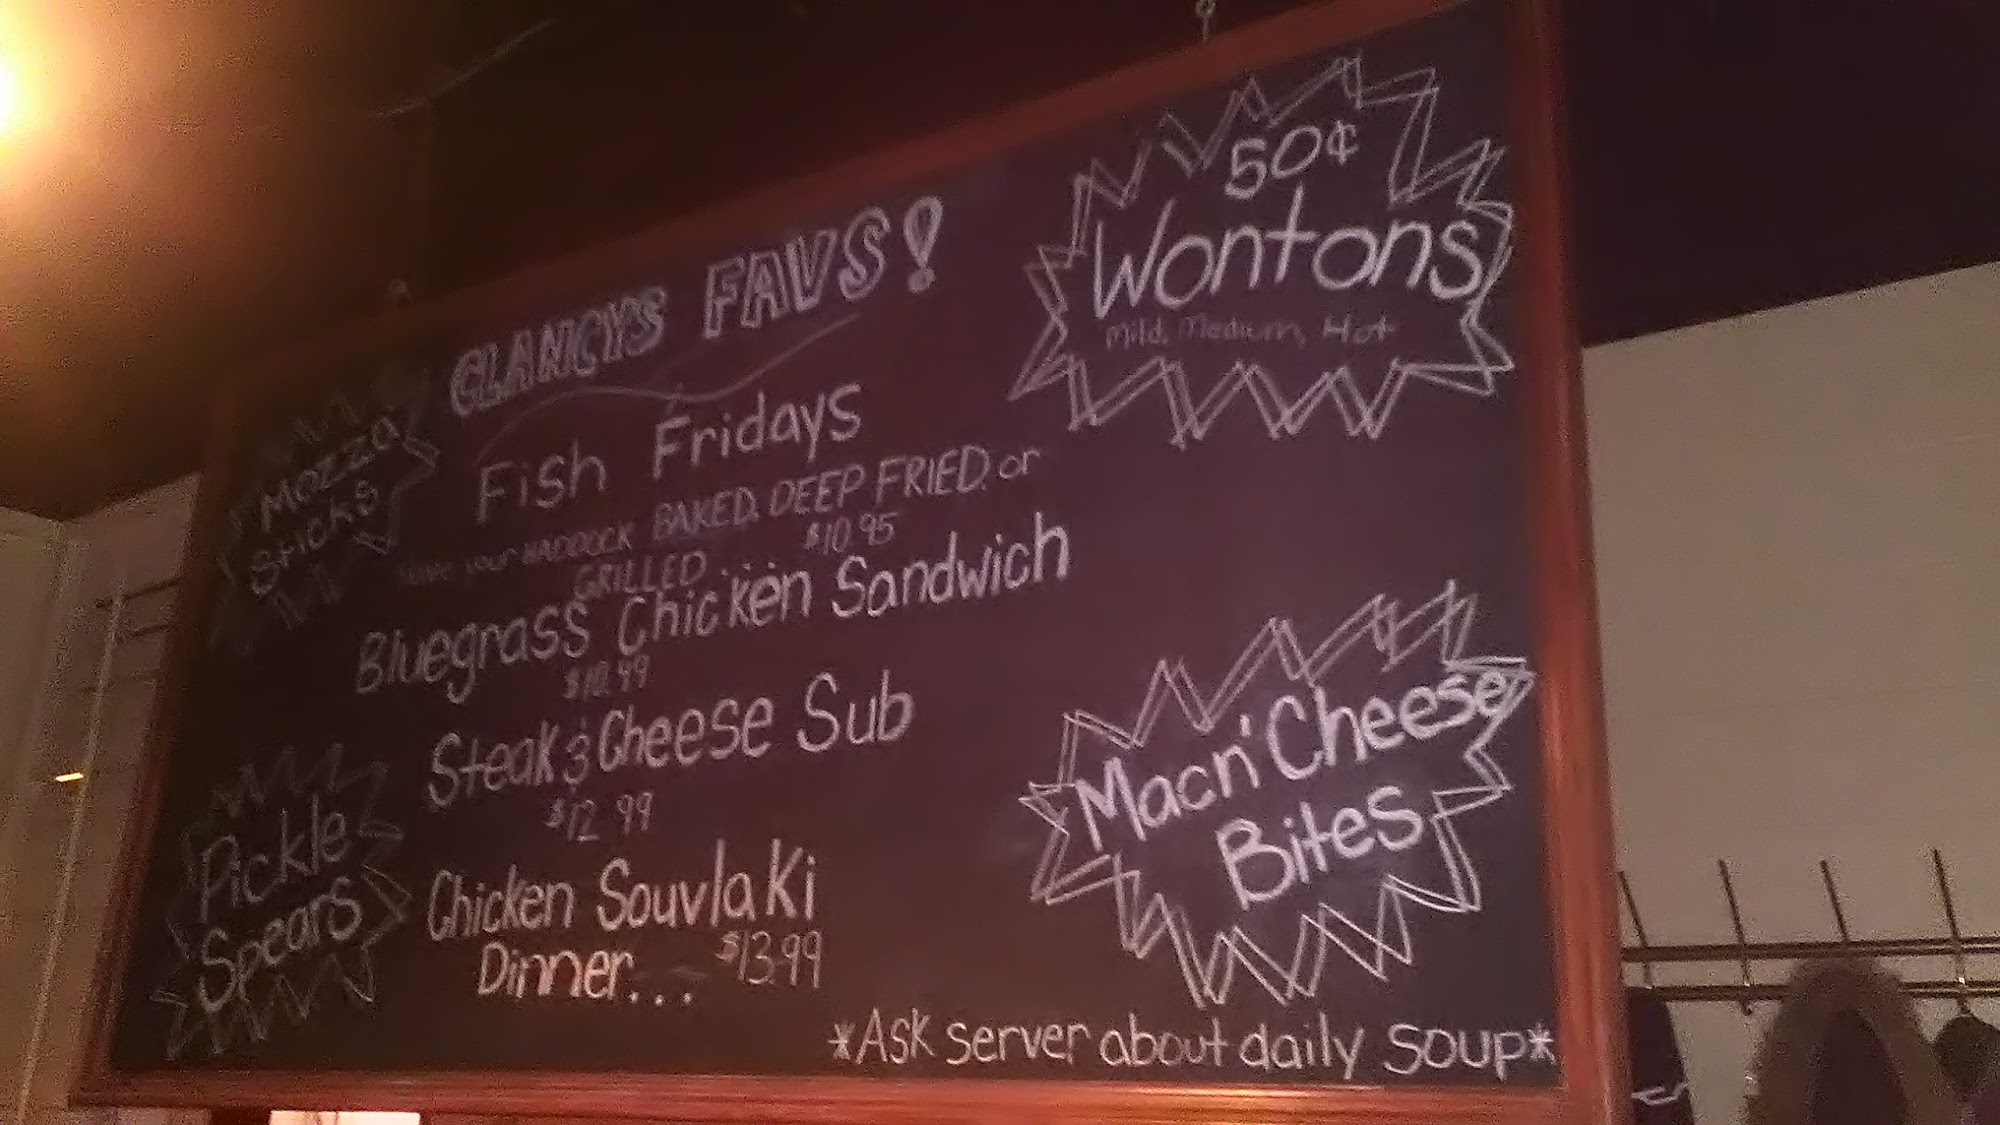 CLANCYS FAVS!
Fish Fridays
Have your HADDOCK BAKED, DEEP FRIED, or
GRILLED... $10.95
Bluegrass Chicken Sandwich
$10.99
Steak & Cheese Sub
$12.99
Chicken Souvlaki
Dinner... $13.99
Mozza
Sticks
Pickle
Spears
50¢
Wontons
Mild, Medium, Hot
Macn' Cheese
Bites
*Ask server about daily soup*